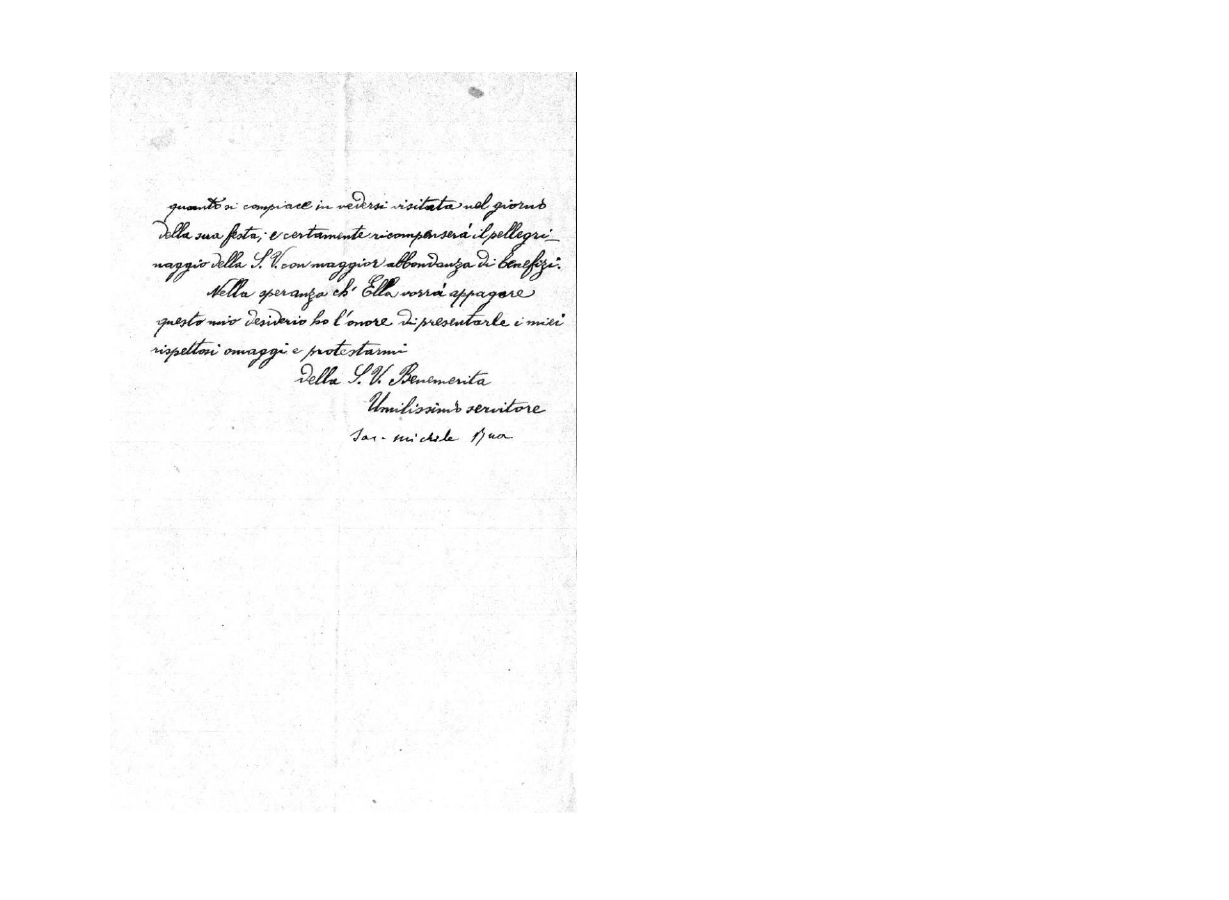 quanto si compiace in vedersi visitata nel giorno
della sua festa; e certamente ricompenserà il pellegri_
naggio della S. V. con maggior abbondanza di benefizi.
Nella speranza ch' Ella vorrà appagare
questo mio desiderio ho l'onore di presentarle i miei
rispettosi omaggi e protestarmi
della S. V. Benemerita
Umilissimo servitore
Sac. Michele Rua